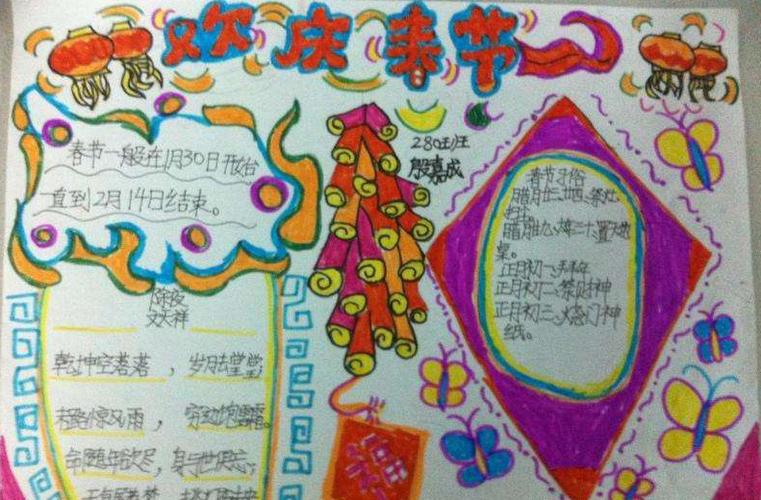 欢庆春节
春节一般在1月30日开始
直到2月14日结束。
280班
殷嘉成
除夜
文天祥
乾坤空落落，岁月去堂堂
末路惊风雨，穷边饱雪霜。
命随年欲尽，身与世俱忘；
春节习俗
腊月廿三、廿四、祭灶
腊月廿九、年三十、置天地
桌。
正月初一、天拜年
正月初二、祭财神
正月初三、烧门神
纸。